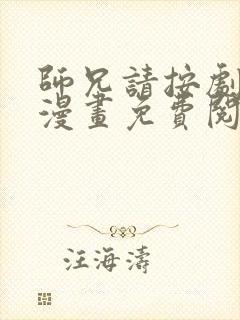 師兄請按劇
漫畫免費閱
汪海濤